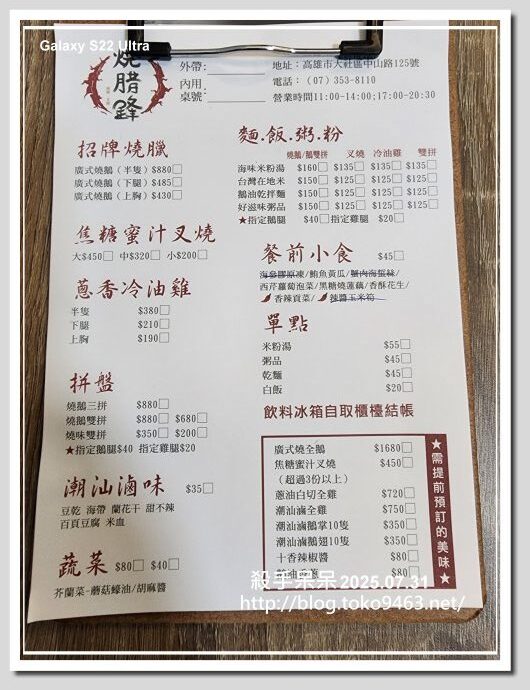 Galaxy S22 Ultra
燒腊鋒
外帶:
內用
桌號:
地址:高雄市大社區中山路125號
電話:(07)353-8110
營業時間11:00-14:00;17:00-20:30
招牌燒臘
廣式燒鵝(半隻)$880□
廣式燒鵝(下腿)$485□
廣式燒鵝(上胸)$430□
焦糖蜜汁叉燒
大$450□ 中$320□ 小$200□
蔥香冷油雞
半隻 $380□
下腿 $210□
上胸 $190□
拼盤
燒鵝三拼 $880□
燒鵝雙拼 $880□ $680□
燒味雙拼 $350□ $200□
★指定鵝腿$40 指定雞腿$20
潮汕滷味 $35□
豆乾 海帶 蘭花干 甜不辣
百頁豆腐 米血
蔬菜 $80□ $40□
芥蘭菜-蘑菇蠔油/胡麻醬
麵.飯.粥.粉
燒鵝/鵝雙拼 叉燒 冷油雞 雙拼
海味米粉湯 $160□ $135□ $135□ $135□
台灣在地米 $150□ $125□ $125□ $125□
鵝油乾拌麵 $150□ $125□ $125□ $125□
好滋味粥品 $150□ $125□ $125□ $125□
★指定鵝腿 $40□指定雞腿 $20□
餐前小食 $45□
海蔘膠原凍/鮪魚黃瓜/蟹肉海蜇絲/
西芹蘿蔔泡菜/黑糖燒蓮藕/香酥花生/
香辣貢菜/ 辣醬玉米筍
單點
米粉湯 $55□
粥品 $45□
乾麵 $45□
白飯 $20□
飲料冰箱自取櫃檯結帳
廣式燒全鵝 $1680□
焦糖蜜汁叉燒 $450□
(超過3份以上)
蔥油白切全雞 $720□
潮汕滷全雞 $750□
潮汕滷鵝掌10隻 $350□
潮汕滷鵝翅10隻 $350□
十香辣椒醬 $80□
$80□
★需提前預訂的美味★
殺手呆呆 2025.07.31
http://blog.toko9463.net/